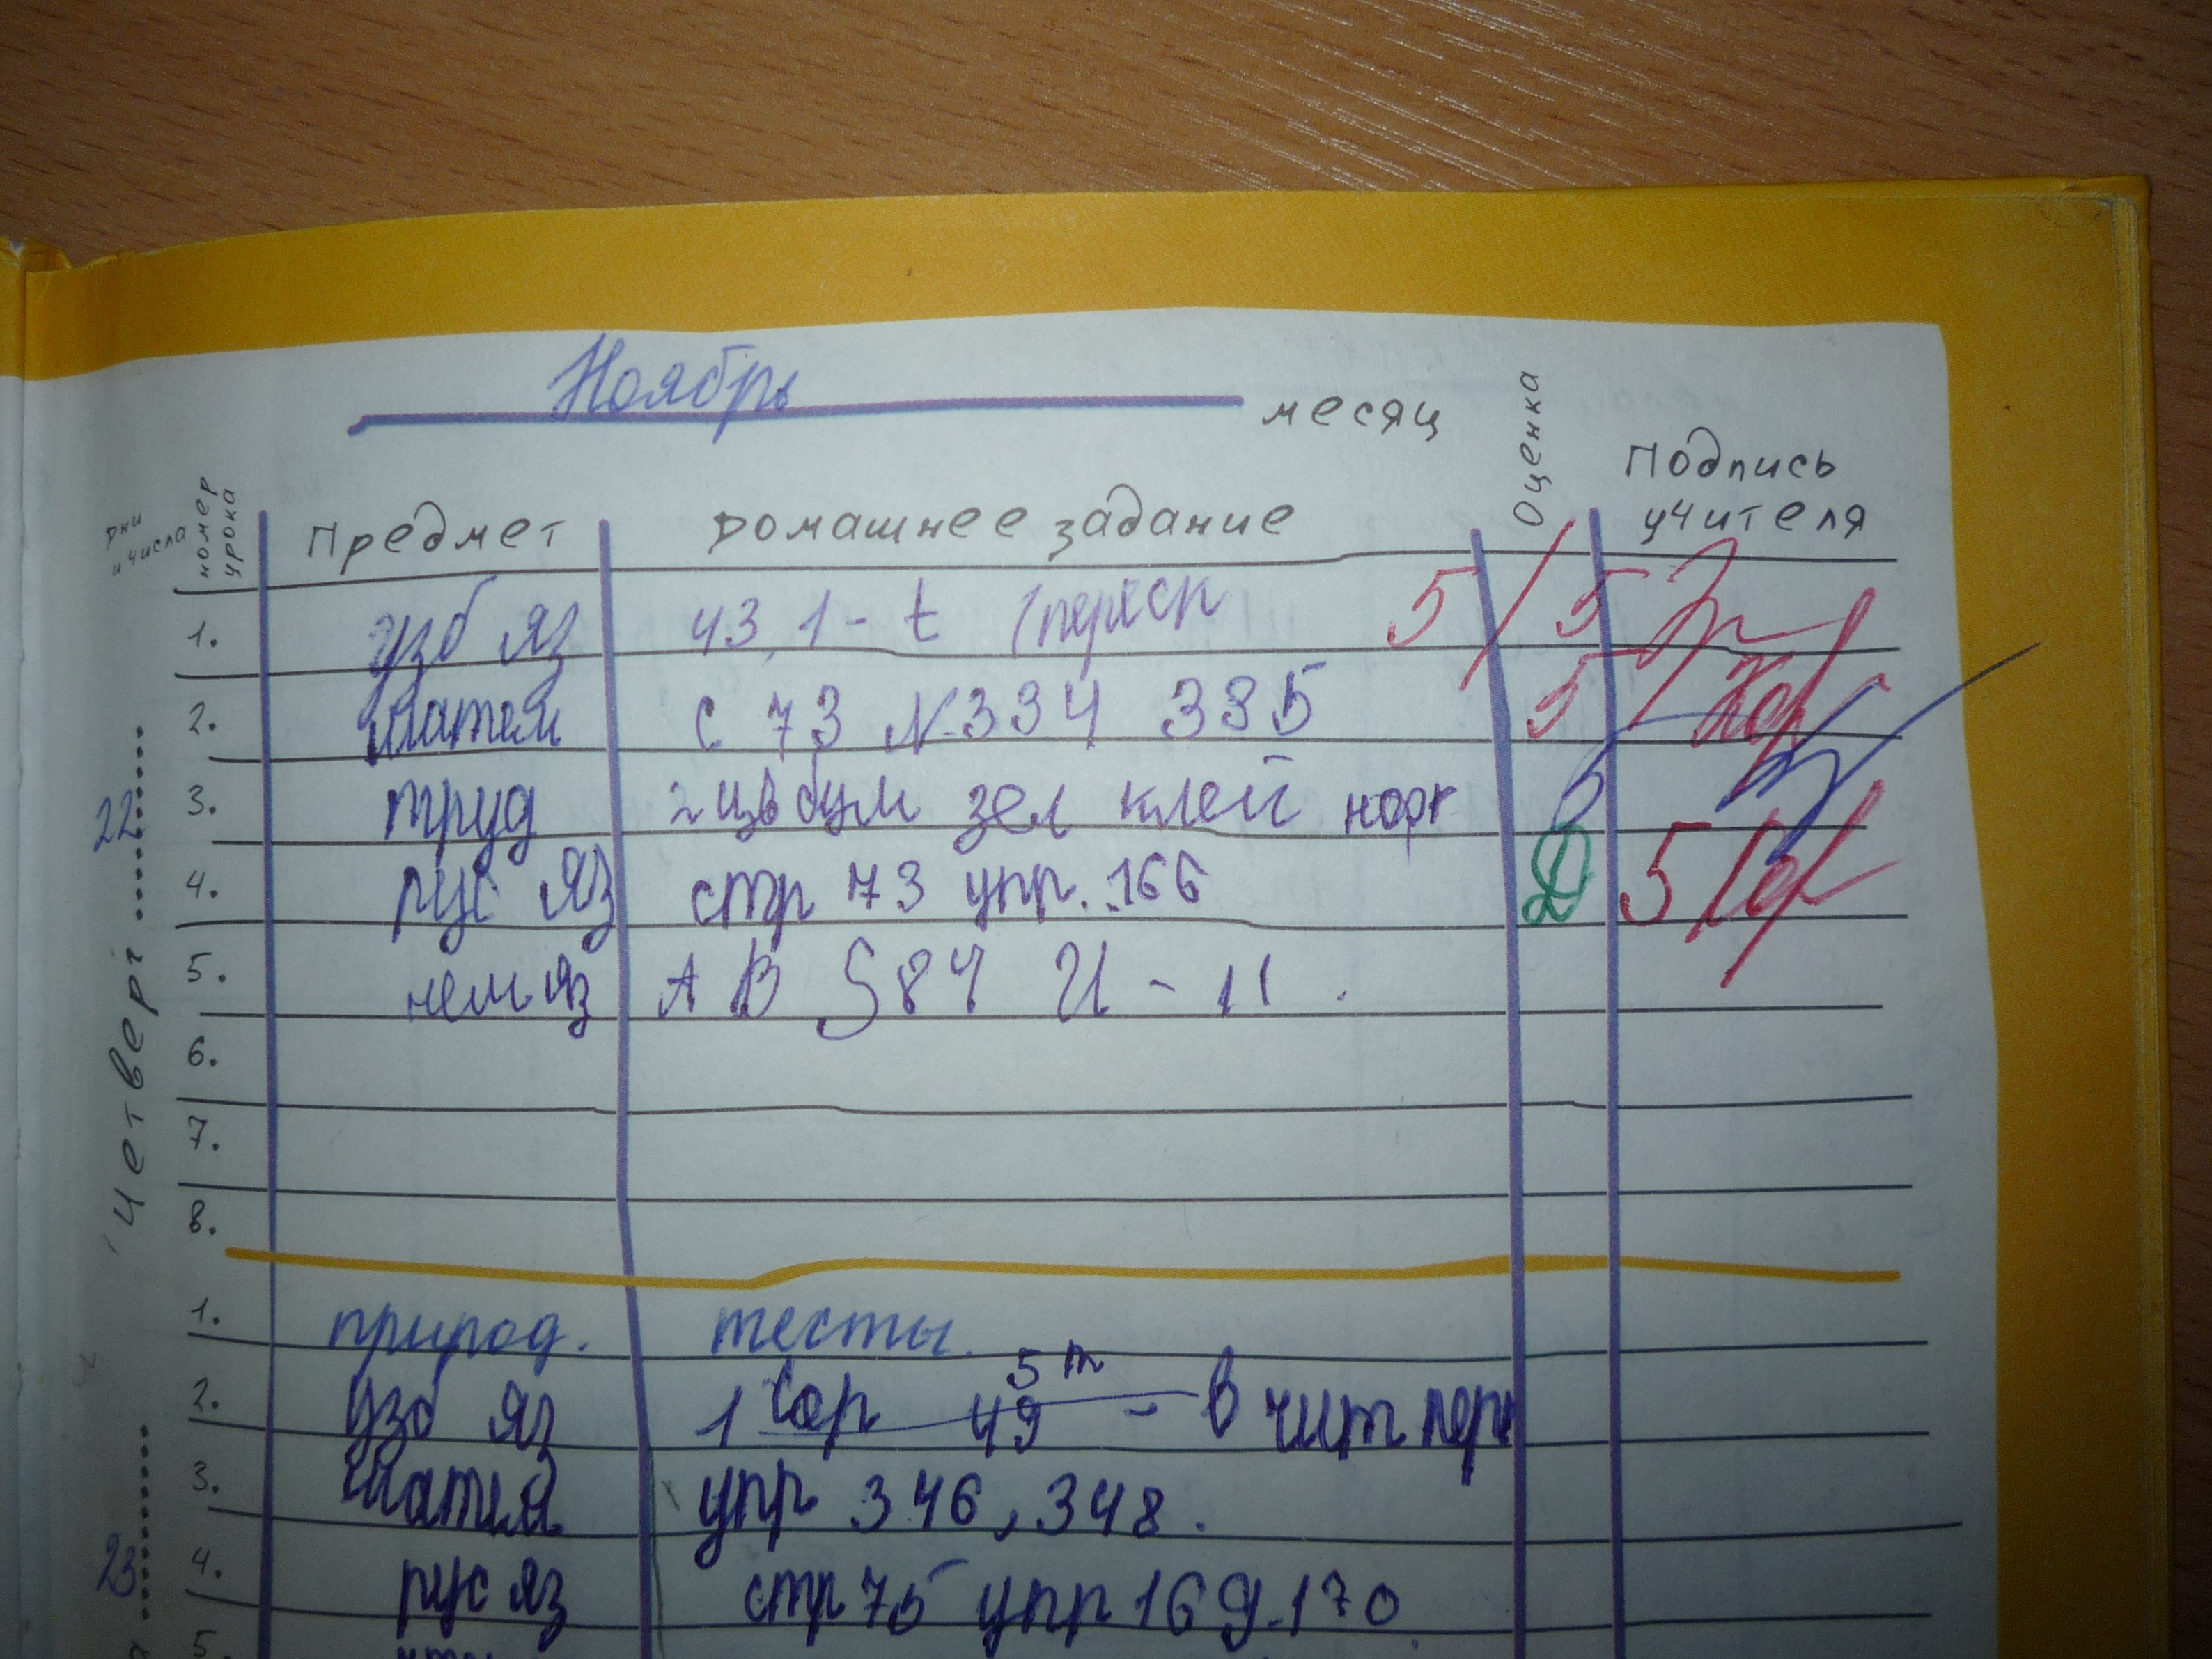 Ноябрь месяц
дни и числа номер урока Предмет Домашнее задание Оценка Подпись учителя
Четверг 22
1. узб яз 43, 1 - t (переск 5/5
2. матем с 73 № 334 335 5
3. труд 2 цв бум зел клей 5
4. рус яз стр 73 упр. 166 Д 5
5. нем яз А В §84 - 11.
6.
7.
8.
23
1. природ. тесты.
2. узб яз 1 49 5 т - в чит
3. матем упр 346, 348.
4. рус яз стр 75 упр 169.170
5.